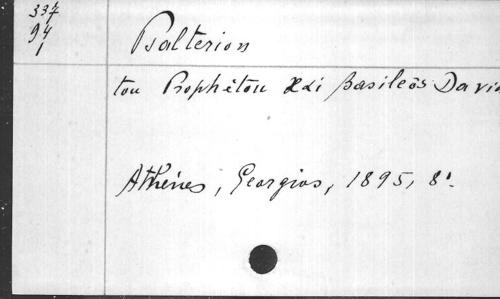 337
94
1
Psalterion
tou Prophêtou Kai Basileôs David
Athènes, Georgios, 1895, 8º.